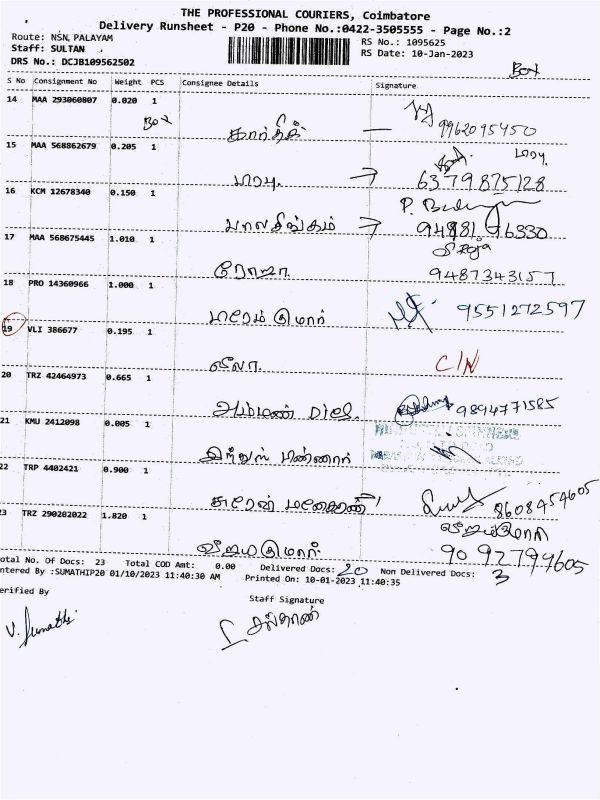 THE PROFESSIONAL COURIERS, Coimbatore
Delivery Runsheet - P20 - Phone No.:0422-3505555 - Page No.:2
Route: NSN, PALAYAM
Staff: SULTAN
DRS No.: DCJB109562502
RS No.: 1095625
RS Date: 10-Jan-2023
Box
S No Consignment No Weight PCS Consignee Details Signature
14 MAA 293060807 0.020 1
Box கார்த்திக் — 9962095450
15 MAA 568862679 0.205 1
பாபு. → 6379875128
16 KCM 12678340 0.150 1
பாலசிங்கம் → 94881 96330
17 MAA 568675445 1.010 1 Sroja
ரோஜா 9487343157
18 PRO 14360966 1.000 1
9551272597
19 VLI 386677 0.195 1
லீலா. C/N
20 TRZ 42464973 0.665 1
9894771585
21 KMU 2412098 0.005 1
22 TRP 4402421 0.900 1
சுரேஷ் 8608454605
23 TRZ 290202022 1.820 1 விஜயகுமார்
விஜயகுமார். 90 92799605
otal No. Of Docs: 23 Total COD Amt: 0.00 Delivered Docs: 20 Non Delivered Docs: 3
ntered By :SUMATHIP20 01/10/2023 11:40:30 AM Printed On: 10-01-2023 11:40:35
erified By Staff Signature
V. Sumathi சுல்தான்